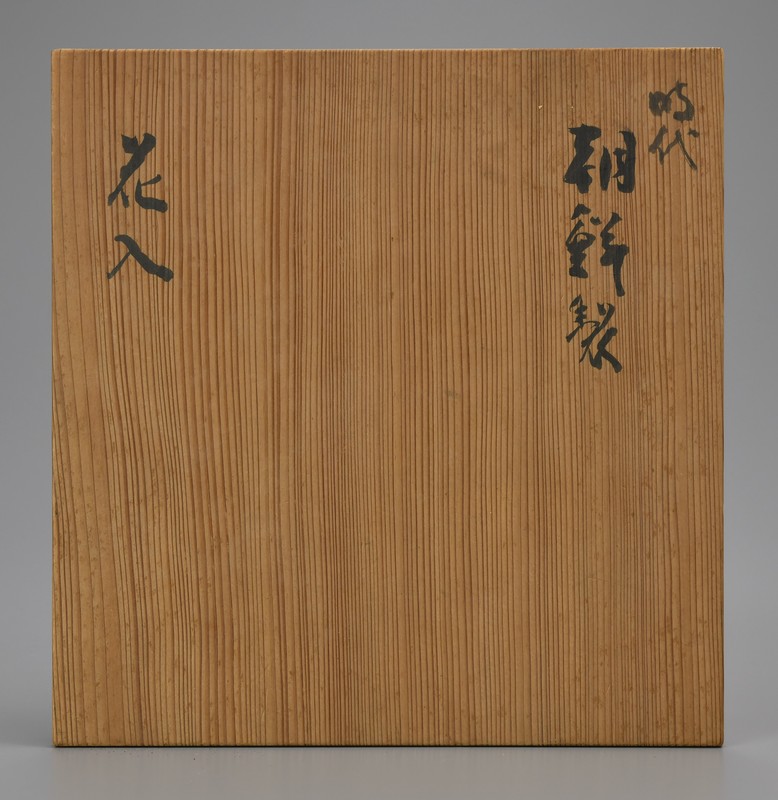 時代
朝鮮製
花入